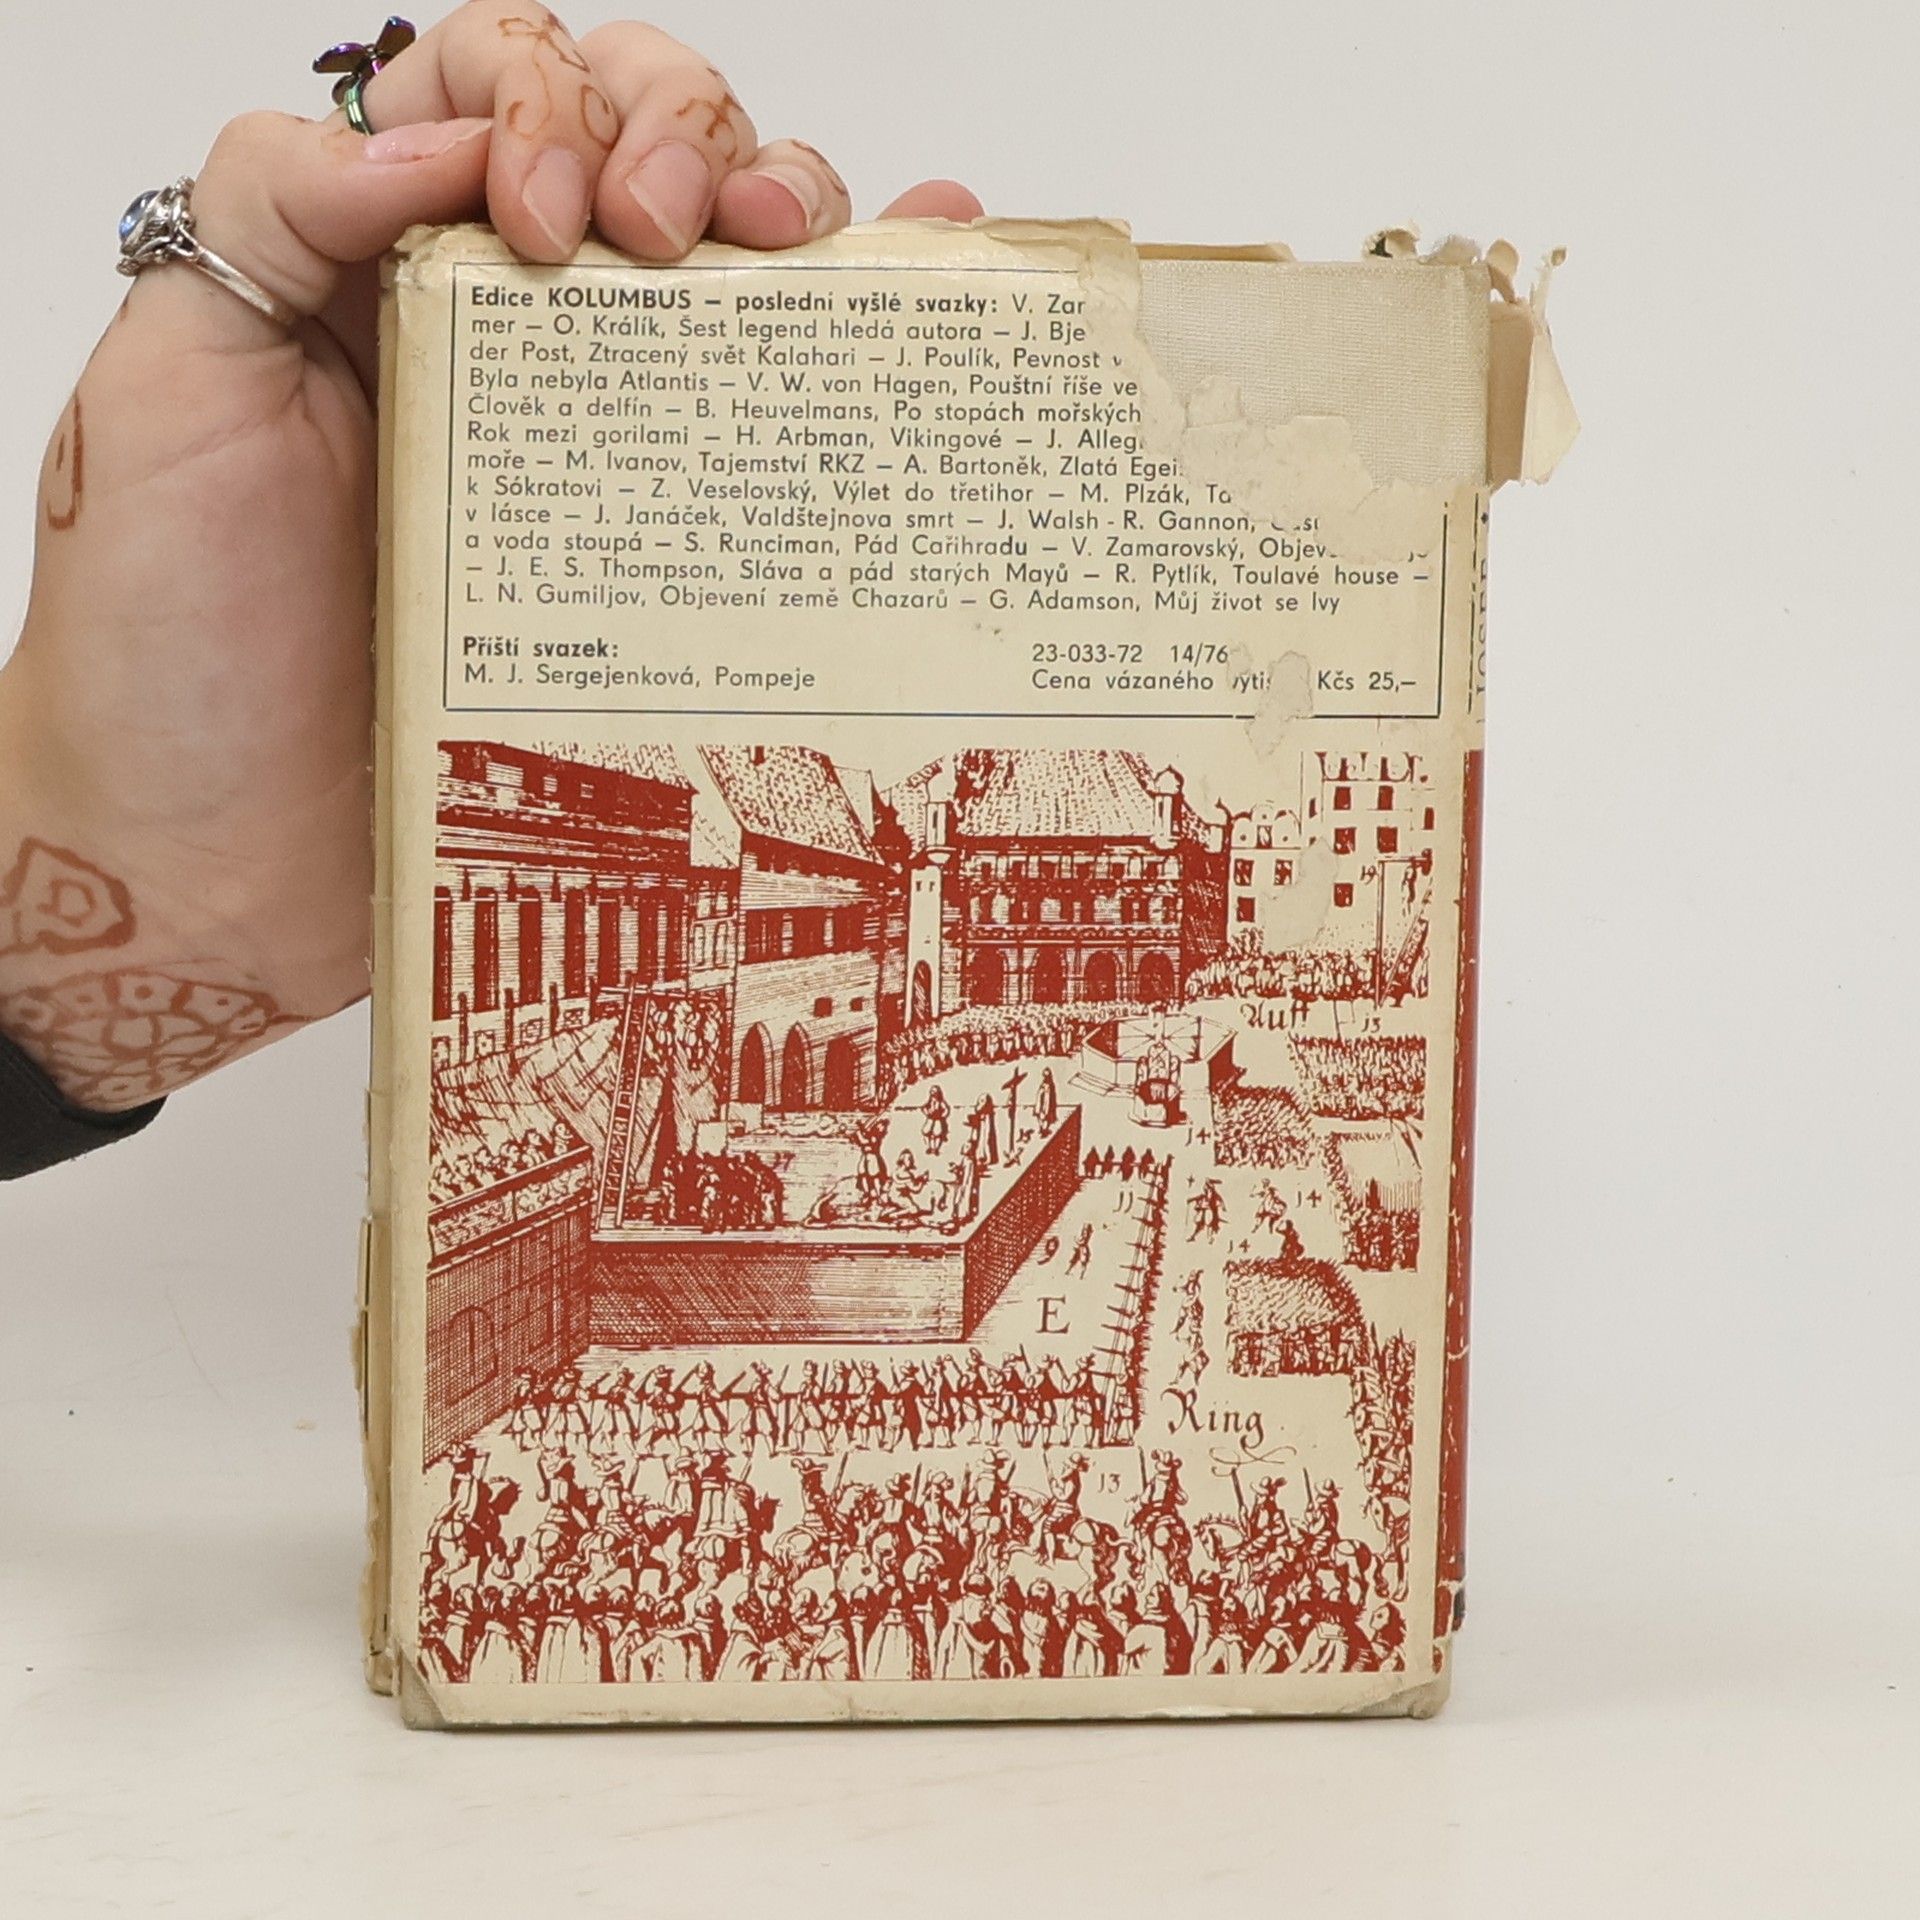 Edice KOLUMBUS – poslední vyšlé svazky: V. Zar
mer – O. Králík, Šest legend hledá autora – J. Bje
der Post, Ztracený svět Kalahari – J. Poulík, Pevnost
Byla nebyla Atlantis – V. W. von Hagen, Pouštní říše ve
Člověk a delfín – B. Heuvelmans, Po stopách mořských
Rok mezi gorilami – H. Arbman, Vikingové – J. Alleg
moře – M. Ivanov, Tajemství RKZ – A. Bartoněk, Zlatá Egei
k Sókratovi – Z. Veselovský, Výlet do třetihor – M. Plzák, Ta
v lásce – J. Janáček, Valdštejnova smrt – J. Walsh - R. Gannon,
a voda stoupá – S. Runciman, Pád Cařihradu – V. Zamarovský, Objev
– J. E. S. Thompson, Sláva a pád starých Mayů – R. Pytlík, Toulavé house –
L. N. Gumiljov, Objevení země Chazarů – G. Adamson, Můj život se lvy
Příští svazek:
M. J. Sergejenková, Pompeje
23-033-72 14/76
Cena vázaného Kčs 25,–
JOSEF
19
Auff
13
15
14
11
14
14
9
E
Ring
13